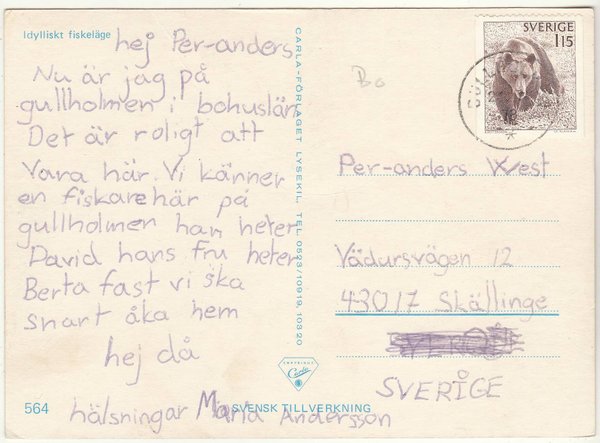 Idylliskt fiskeläge
hej Per-anders
Nu är jag på
gullholmen i bohuslän
Det är roligt att
Vara här. Vi känner
en fiskare här på
gullholmen han heter
David hans fru heter
Berta fast vi ska
snart åka hem
hej då
hälsningar Maria Andersson
564
SVENSK TILLVERKNING
CARLA-FÖRLAGET LYSEKIL TEL 0523/10919, 10320
Carla
Bo
SVERIGE
115
Per-anders West
Vädursvägen 12
43017 Skällinge
SVERIGE